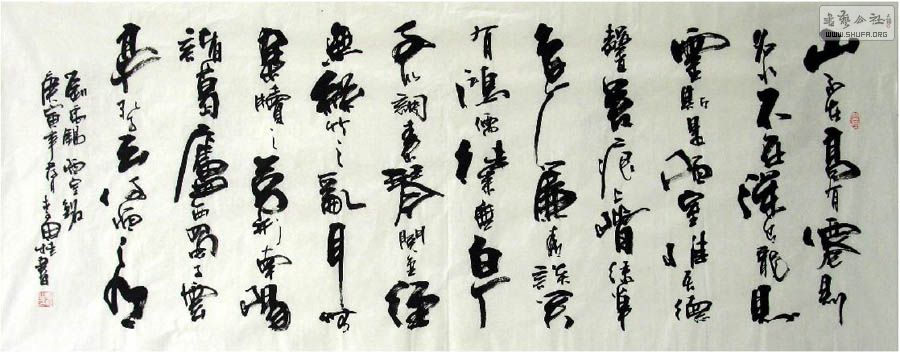 书艺公社
WWW.SHUFA.ORG
山不在高有僊則
名水不在深有龍則
靈斯是陋室惟吾德
馨苔痕上階綠草
色入簾青談笑
有鴻儒往來無白丁
可以調素琴閱金經
無絲竹之亂耳無
案牘之勞形南陽
諸葛廬西蜀子雲
亭孔子云何陋之有
劉禹錫陋室銘
庚寅年春月李田書